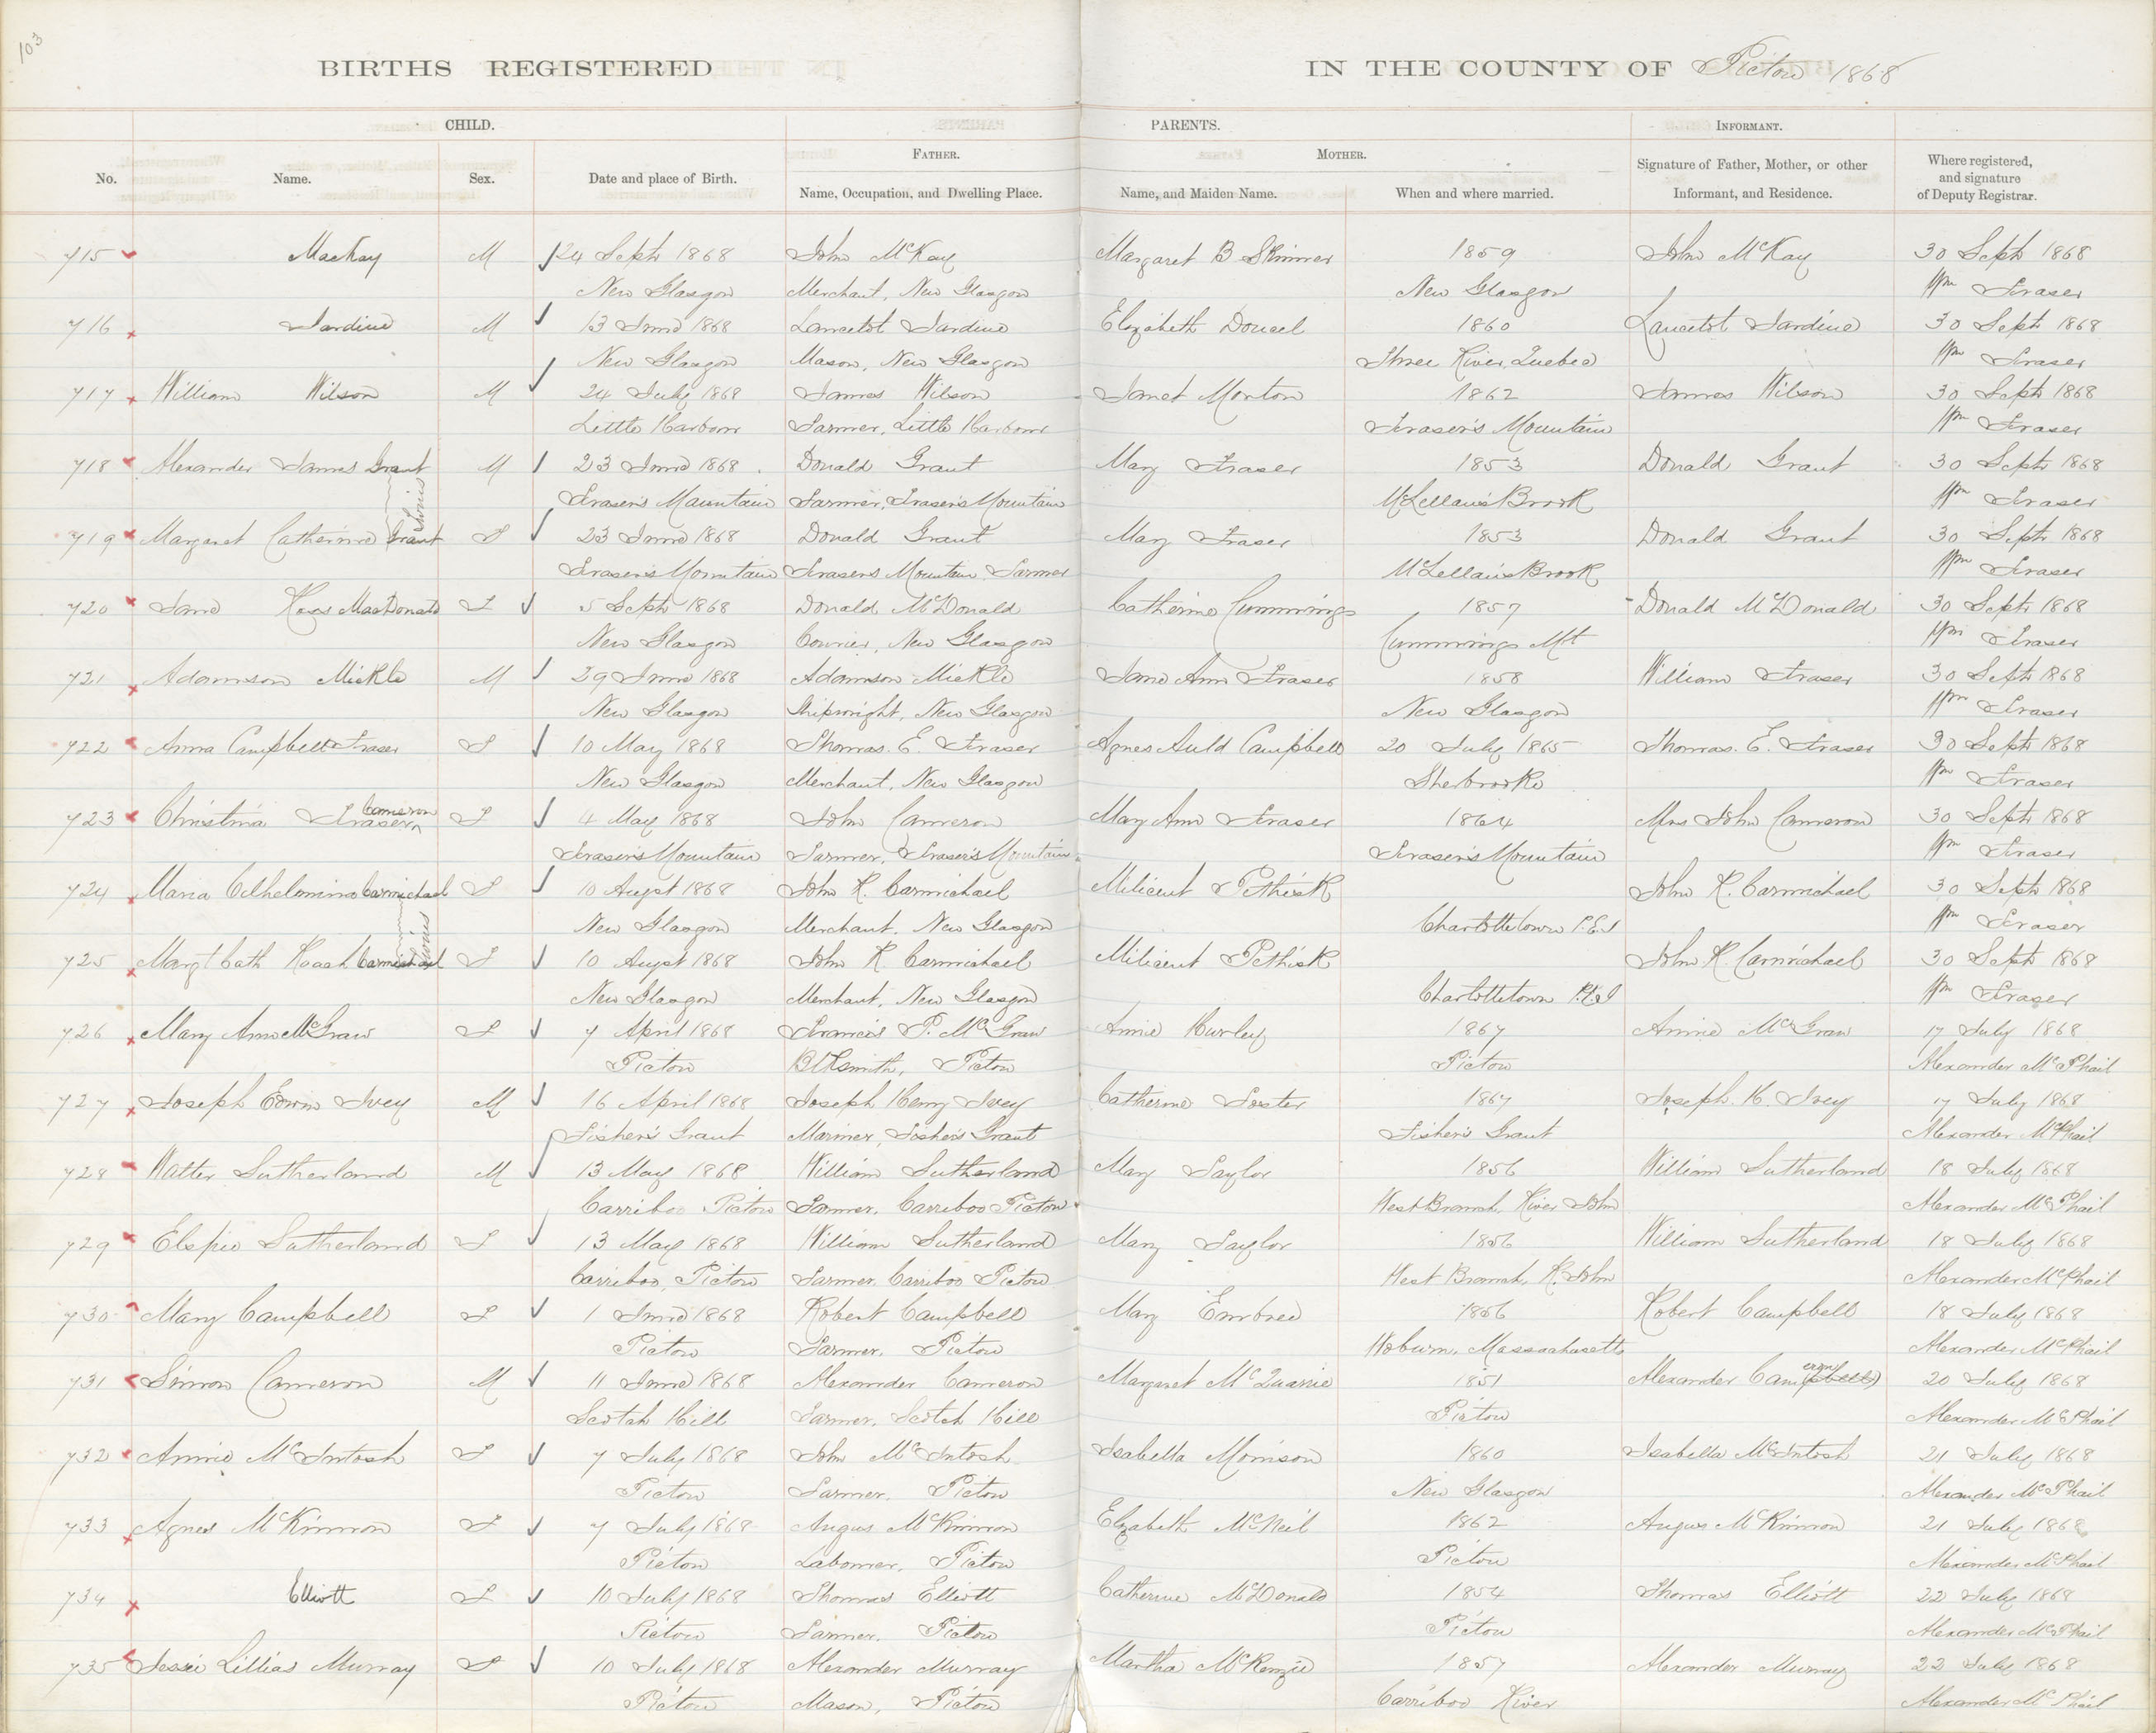 103
BIRTHS REGISTERED IN THE COUNTY OF Pictou 1868
CHILD. PARENTS. INFORMANT.
FATHER. MOTHER.
No. Name. Sex. Date and place of Birth. Name, Occupation, and Dwelling Place. Name, and Maiden Name. When and where married. Signature of Father, Mother, or other Informant, and Residence. Where registered, and signature of Deputy Registrar.
715 MacKay M 24 Sept 1868 John McKay Margaret B Skinner 1859 John McKay 30 Sept 1868
New Glasgow Merchant, New Glasgow New Glasgow Wm Fraser
716 Jardine M 13 June 1868 Lancelot Jardine Elizabeth Doucel 1860 Lancelot Jardine 30 Sept 1868
New Glasgow Mason, New Glasgow Three River, Quebec Wm Fraser
717 William Wilson M 24 July 1868 James Wilson Janet Morton 1862 James Wilson 30 Sept 1868
Little Harbour Farmer, Little Harbour Fraser's Mountain Wm Fraser
718 Alexander James Grant M 23 June 1868 Donald Grant Mary Fraser 1853 Donald Grant 30 Sept 1868
Twins
Fraser's Mountain Farmer, Fraser's Mountain McLellan's Brook Wm Fraser
719 Margaret Catherine Grant F 23 June 1868 Donald Grant Mary Fraser 1853 Donald Grant 30 Sept 1868
Fraser's Mountain Fraser's Mountain, Farmer McLellan's Brook Wm Fraser
720 Jane Ross MacDonald F 5 Sept 1868 Donald McDonald Catherine Cummings 1857 Donald McDonald 30 Sept 1868
New Glasgow Courier, New Glasgow Cummings Mt Wm Fraser
721 Adamson Mickle M 29 June 1868 Adamson Mickle Jane Ann Fraser 1858 William Fraser 30 Sept 1868
New Glasgow Shipwright, New Glasgow New Glasgow Wm Fraser
722 Anna Campbell Fraser F 10 May 1868 Thomas. E. Fraser Agnes Auld Campbell 20 July 1865 Thomas. E. Fraser 30 Sept 1868
New Glasgow Merchant, New Glasgow Sherbrooke Wm Fraser
723 Christina Fraser Cameron F 4 May 1868 John Cameron Mary Ann Fraser 1864 Mrs John Cameron 30 Sept 1868
Fraser's Mountain Farmer, Fraser's Mountain Fraser's Mountain Wm Fraser
724 Maria Wilhelmina Carmichael F 10 Augst 1868 John R. Carmichael Milicent Pethick John R. Carmichael 30 Sept 1868
Twins
New Glasgow Merchant, New Glasgow Charlottetown P.E.I Wm Fraser
725 Margt Cath Roach Carmichael F 10 Augst 1868 John R. Carmichael Milicent Pethick John R. Carmichael 30 Sept 1868
New Glasgow Merchant, New Glasgow Charlottetown P.E.I Wm Fraser
726 Mary Ann McGraw F 7 April 1868 Francis P. McGraw Annie Hurley 1867 Annie McGraw 17 July 1868
Pictou Blksmith, Pictou Pictou Alexander McPhail
727 Joseph Edwin Ivey M 16 April 1868 Joseph Henry Ivey Catherine Foster 1867 Joseph. H. Ivey 17 July 1868
Fisher's Grant Mariner, Fisher's Grant Fisher's Grant Alexander McPhail
728 Walter Sutherland M 13 May 1868 William Sutherland Mary Taylor 1856 William Sutherland 18 July 1868
Carriboo Pictou Farmer, Carriboo Pictou West Branch, River John Alexander McPhail
729 Elspie Sutherland F 13 May 1868 William Sutherland Mary Taylor 1856 William Sutherland 18 July 1868
Carriboo, Pictou Farmer, Carriboo Pictou West Branch, R. John Alexander McPhail
730 Mary Campbell F 1 June 1868 Robert Campbell Mary Embree 1866 Robert Campbell 18 July 1868
Pictou Farmer, Pictou Woburn, Massachusetts Alexander McPhail
731 Simon Cameron M 11 June 1868 Alexander Cameron Margaret McQuarrie 1851 Alexander Cameron 20 July 1868
Scotch Hill Farmer, Scotch Hill Pictou Alexander McPhail
732 Annie McIntosh F 7 July 1868 John McIntosh Isabella Morrison 1860 Isabella McIntosh 21 July 1868
Pictou Farmer, Pictou New Glasgow Alexander McPhail
733 Agnes McKinnon F 7 July 1868 Angus McKinnon Elizabeth McNeil 1862 Angus McKinnon 21 July 1868
Pictou Labourer, Pictou Pictou Alexander McPhail
734 Elliott F 10 July 1868 Thomas Elliott Catherine McDonald 1854 Thomas Elliott 22 July 1868
Pictou Farmer, Pictou Pictou Alexander McPhail
735 Jessie Lillias Murray F 10 July 1868 Alexander Murray Martha McKenzie 1857 Alexander Murray 22 July 1868
Pictou Mason, Pictou Carriboo River Alexander McPhail